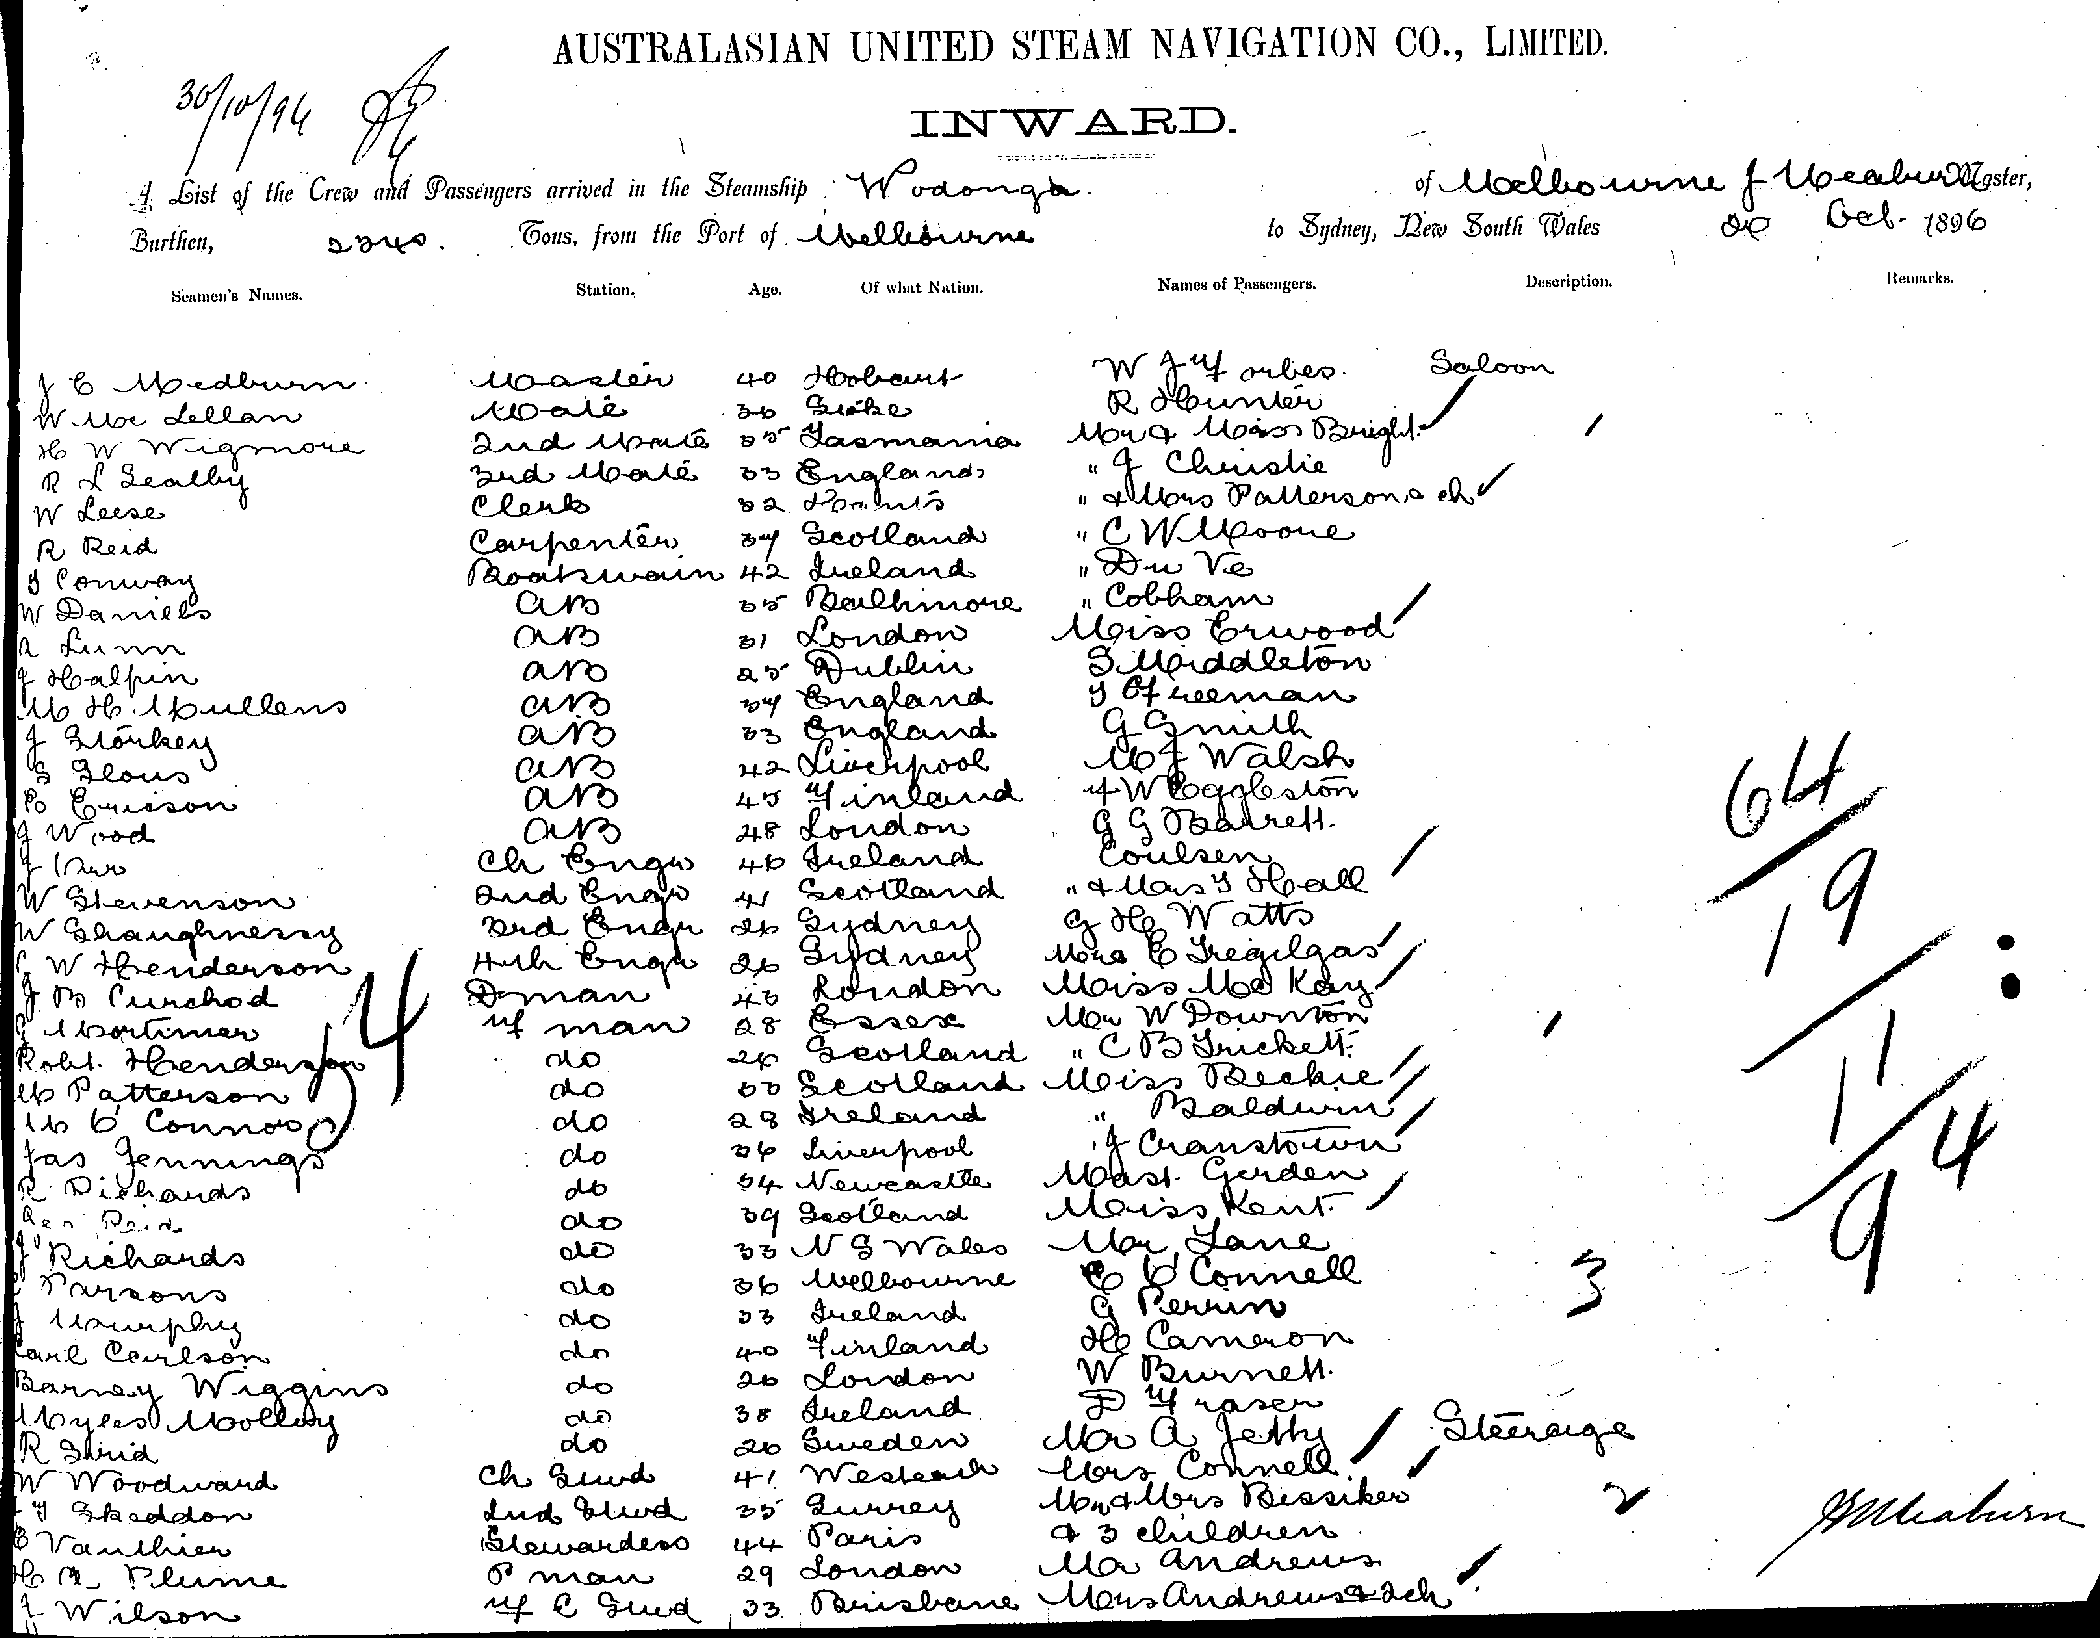 AUSTRALASIAN UNITED STEAM NAVIGATION CO., LIMITED.
30/10/96
INWARD.
A List of the Crew and Passengers arrived in the Steamship Wodonga of Melbourne J Meaburn Master,
Burthen, 2340 Tons, from the Port of Melbourne to Sydney, New South Wales Oct. 1896
Seamen's Names. Station. Age. Of what Nation. Names of Passengers. Description. Remarks.
Master 40 Hobart W J Forbes. Saloon
W Mc Lellan Mate 36 R Hunter
H W Wigmore 2nd Mate 35 Tasmania Mr & Miss Bright
R L Sealby 3rd Mate 33 England " J Christie
W Leese Clerk 32 " & Mrs Patterson & ch
R Reid Carpenter 34 Scotland " C W Moore
Conway Boatswain 42 Ireland " Du Ve
W Daniels AB 35 Balthimore " Cobham
Lunn AB 31 London Miss Erwood
J Halpin AB 25 Dublin S Middleton
M H Mullens AB 34 England Freeman
J Storkey AB 33 England G Smith
AB 42 Liverpool M J Walsh
Ericson AB 45 Finland F W Eggleston
J Wood AB 48 London G G Barrett.
J Ch Engr 46 Ireland Coulsen
W Stevenson 2nd Engr 41 Scotland " & Mrs T Hall
W Shaughnessy 3rd Engr 26 Sydney G H Watts
W Henderson 4th Engr 26 Sydney Mrs E Tregilgas
J B Curchod D man 43 London Miss Mc Kay
Mortimer F man 28 Essex Mr W Downton
Robt. Henderson do 26 Scotland " C B Trickett.
M Patterson do 33 Scotland Miss Beckie
M O Connor do 28 Ireland " Baldwin
Jas Jennings do 36 Liverpool " J Cranstown
R Richards do 34 Newcastle Mast. Gerden
Geo Reid do 39 Scotland Miss Kent.
J Richards do 33 N S Wales Mr Lane
Parsons do 36 Melbourne O Connell
J Murphy do 33 Ireland G Perrin
Carl Carlson do 40 Finland H Cameron
Barney Wiggins do 26 London W Burnett.
Myles Molloy do 38 Ireland D Fraser
R do 26 Sweden Mr A Jetty Steerage
W Woodward Ch Stwd 41 Mrs Connell
Skeddon 2nd Stwd 35 Surrey Mr & Mrs Bissiker
Vauthier Stewardess 44 Paris & 3 children
H A Plume P man 29 London Mr Andrews
J Wilson F C Stwd 33 Brisbane Mrs Andrews & 2ch
54
3
2
64
19
11
94
J Meaburn